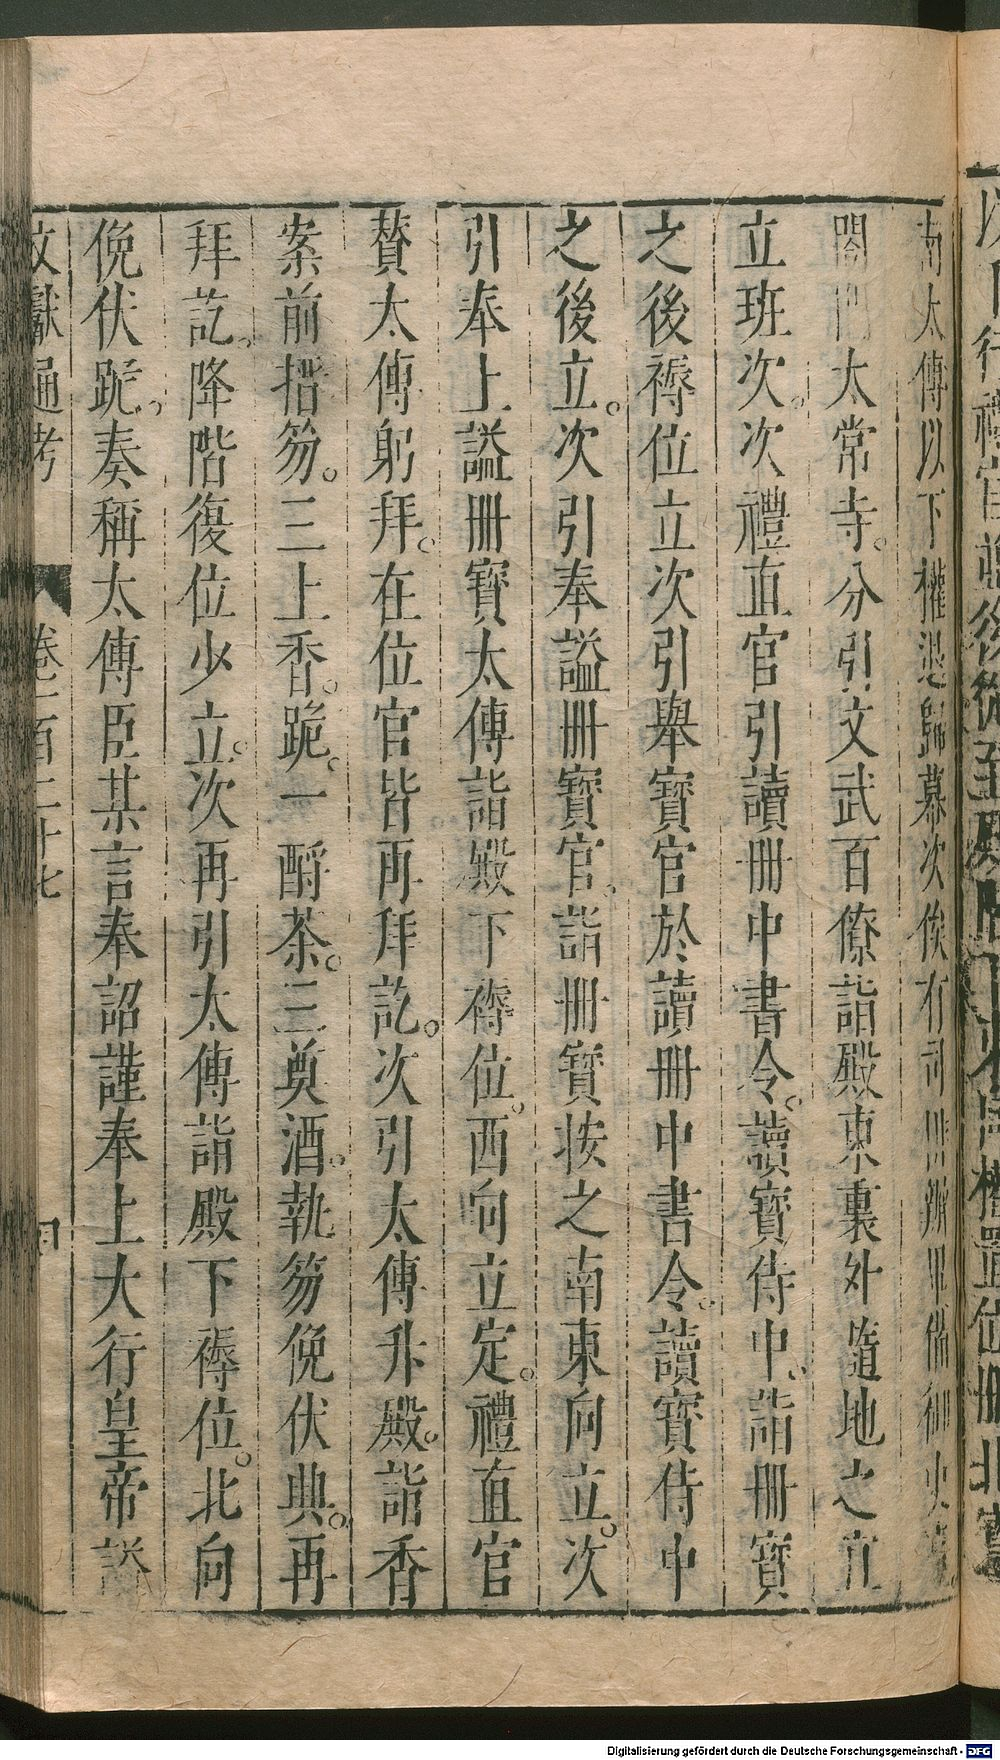 南太傅以下權退歸幕次俟有司排辦畢備御史臺
閤門太常寺分引文武百僚詣殿東裏外隨地之宜
立班次次禮直官引讀冊中書令讀寶侍中詣冊寶
之後褥位立次引舉寶官於讀冊中書令讀寶侍中
之後立次引奉謚冊寶官詣冊寶按之南東向立次
引奉上謚冊寶太傅詣殿下褥位西向立定禮直官
贊太傅躬拜在位官皆再拜訖次引太傅升殿詣香
案前搢笏三上香跪一酹茶三奠酒執笏俛伏興再
拜訖降階復位少立次再引太傅詣殿下褥位北向
俛伏跪奏稱太傅臣某言奉詔謹奉上大行皇帝謚
文獻通考 卷一百二十七
Digitalisierung gefördert durch die Deutsche Forschungsgemeinschaft - DFG